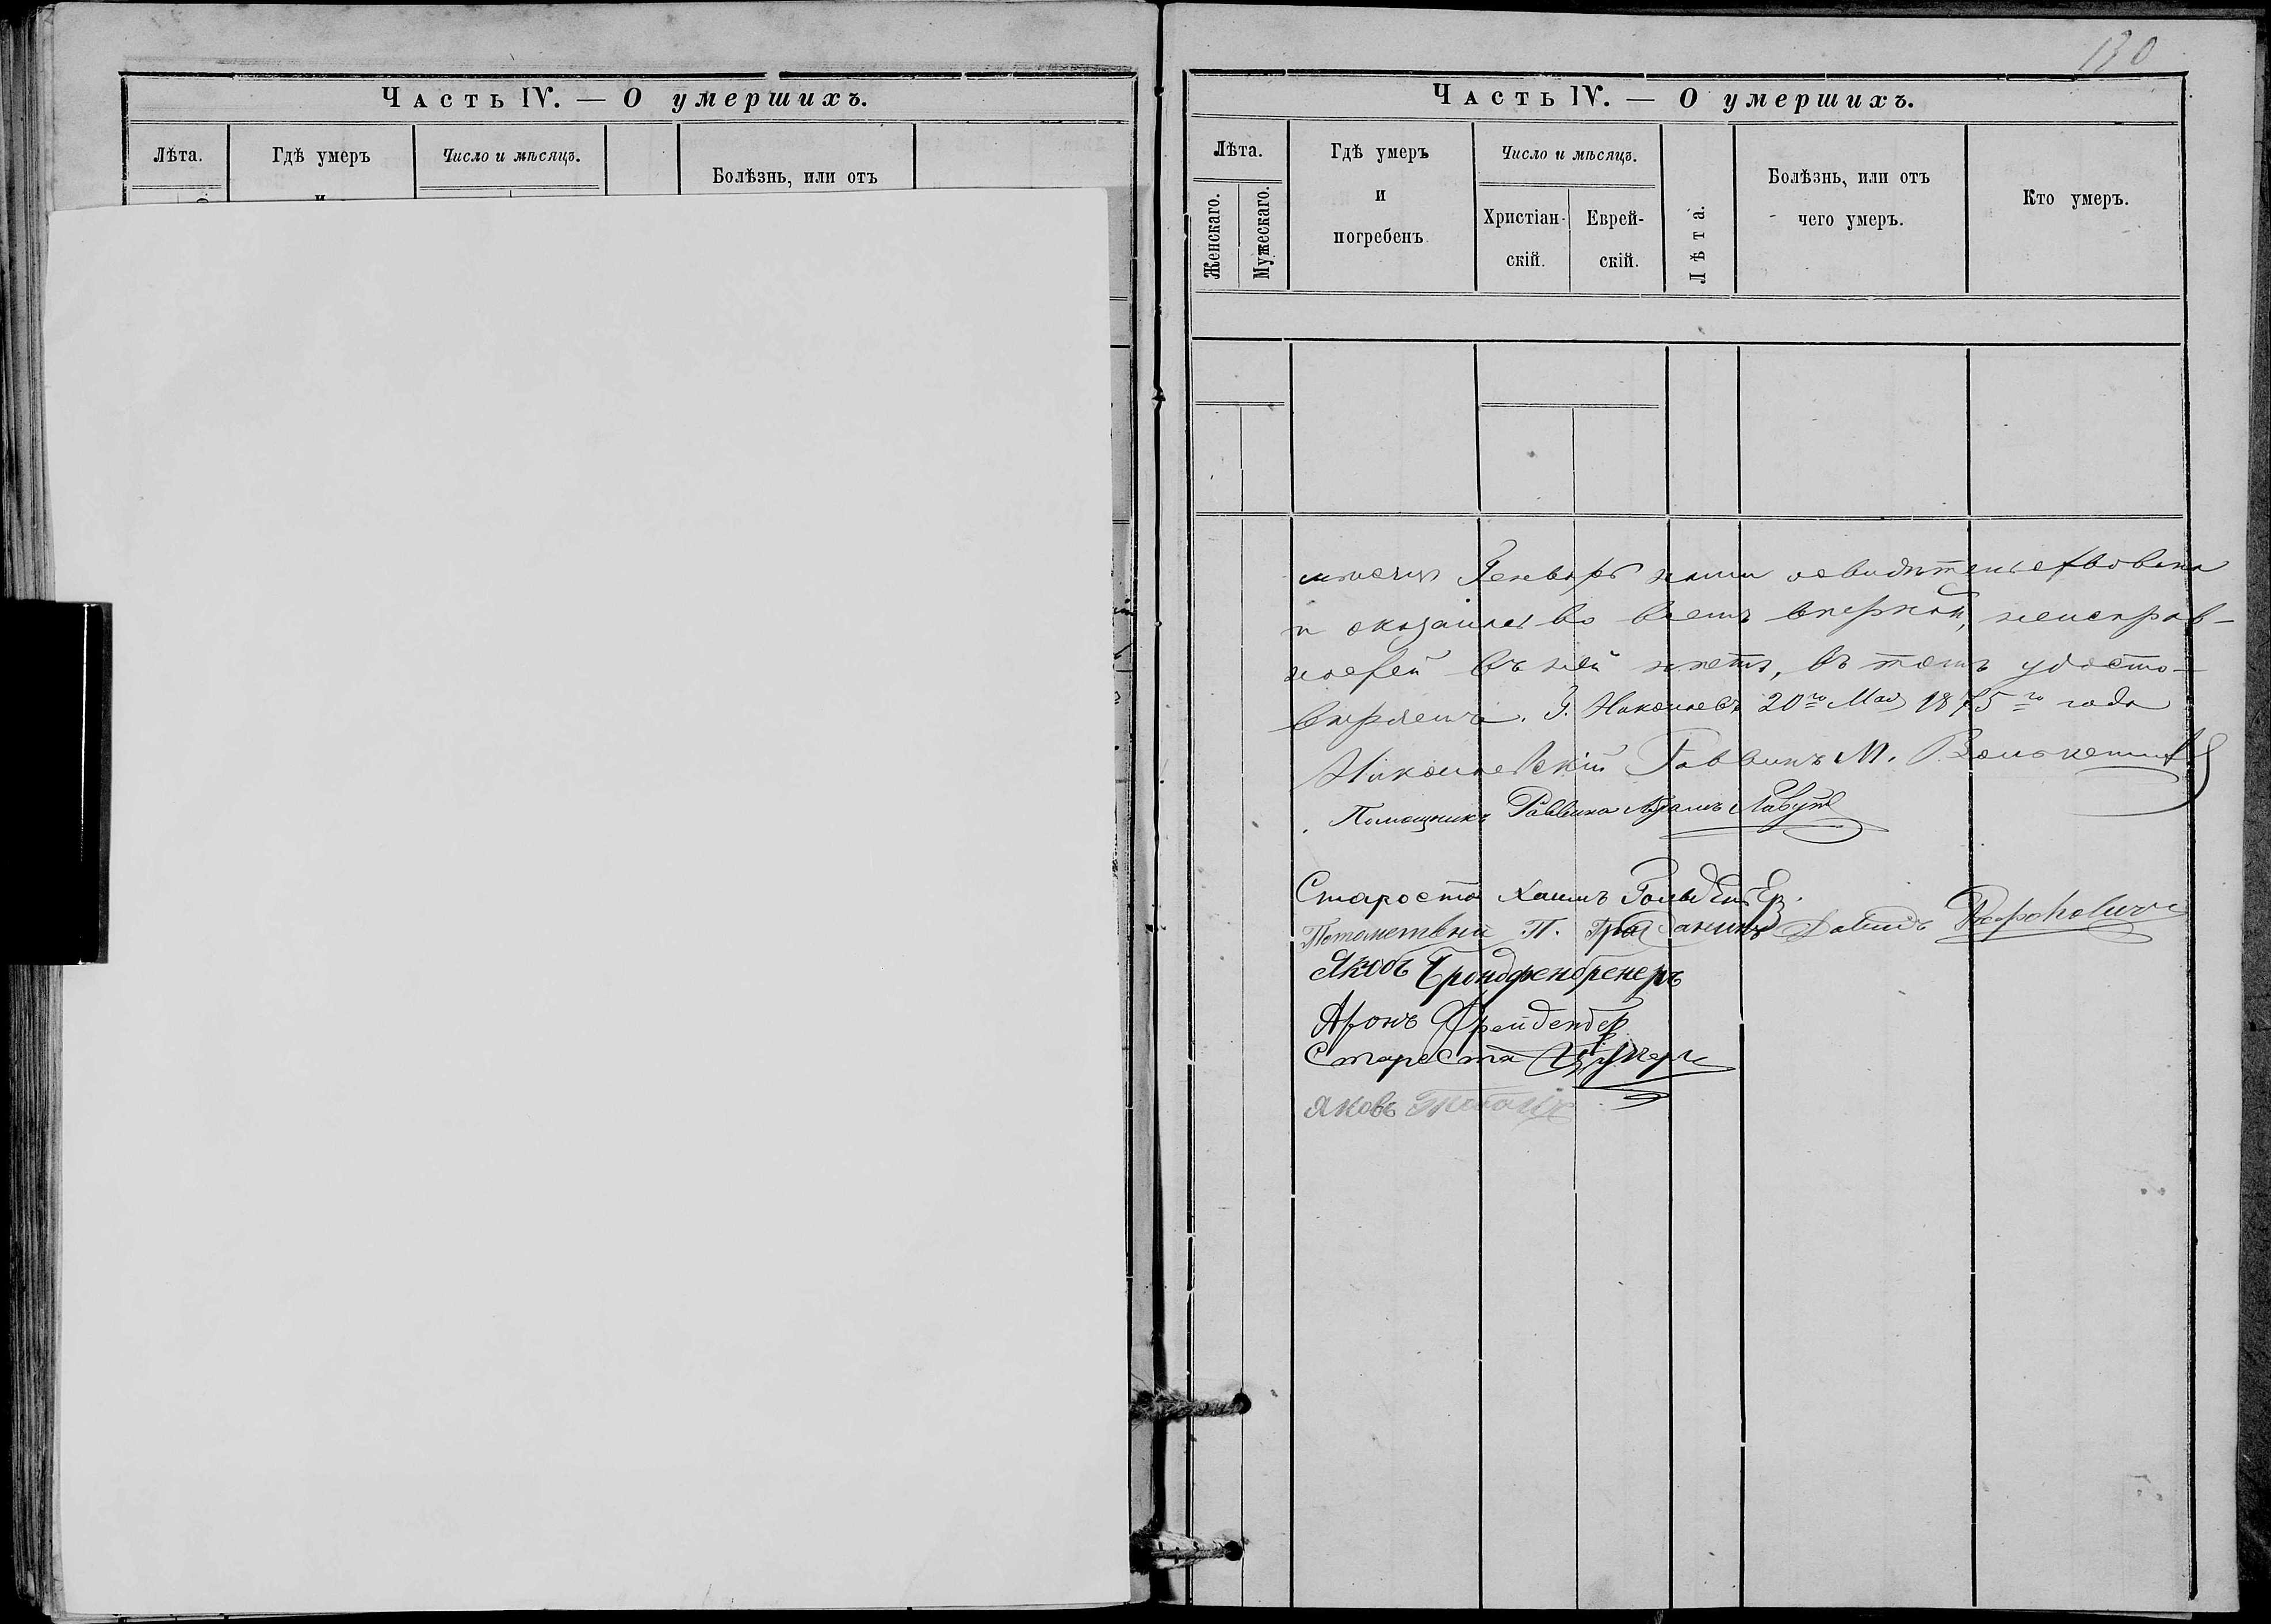 Часть IV. — О умершихъ.
Лѣта.
Гдѣ умеръ
Число и мѣсяцъ.
Болѣзнь, или отъ
130
Часть IV. — О умершихъ.
Лѣта.
Женскаго.
Мужескаго.
Гдѣ умеръ
и
погребенъ
Число и мѣсяцъ.
Христіан-
скій.
Еврей-
скій.
Лѣта.
Болѣзнь, или отъ
чего умеръ.
Кто умеръ.
мѣсяцъ Генварь нами освидѣтельствована
и оказалась во всемъ вѣрной, неисправ-
ностей въ ней нѣтъ, въ томъ удосто-
вѣряемъ. Г. Николаевъ 20го Мая 1875го года
Николаевскій Раввинъ М.
Помощникъ Раввина Абрамъ
Староста Хаимъ
П. Гражданинъ Давидъ Рафаловичъ
Якобъ
Аронъ
Староста
Яковъ